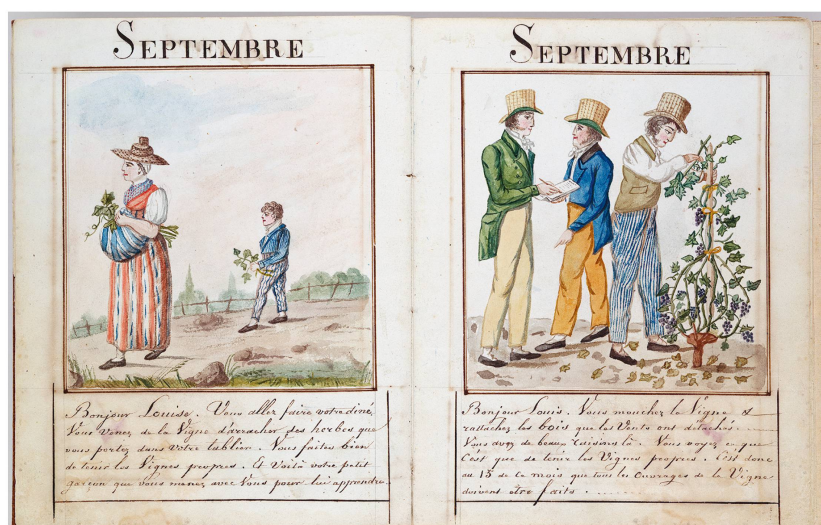 SEPTEMBRE
Bonjour Louise. Vous allez faire votre diné,
Vous Venez de la Vigne d'arracher des herbes que
vous portez dans votre tablier. Vous faites bien
de tenir les Vignes propres. Et Voilà votre petit
garçon que vous menez avec Vous pour lui apprendre.
SEPTEMBRE
Bonjour Louis. Vous mouchez la Vigne et
rattachez les bois que les Vents ont détachés
Vous avez de beaux raisins là. Vous voyez ce que
C'est que de tenir les Vignes propres. C'est donc
au 15 de Ce mois que tous les Ouvrages de la Vigne
doivent être faits.